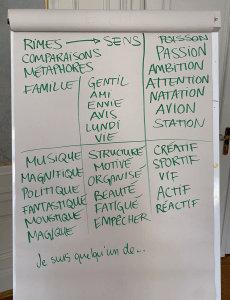 RIMES → SENS
COMPARAISONS
METAPHORES
FAMILLE
GENTIL
AMI
ENVIE
AVIS
LUNDI
VIE
POISSON
PASSION
AMBITION
ATTENTION
NATATION
AVION
STATION
MUSIQUE
MAGNIFIQUE
POLITIQUE
FANTASTIQUE
MOUSTIQUE
MAGIQUE
STRUCTURE
MOTIVÉ
ORGANISÉ
BEAUTÉ
FATIGUE
EMPÊCHER
CRÉATIF
SPORTIF
VIF
ACTIF
RÉACTIF
Je suis quelqu'un de...